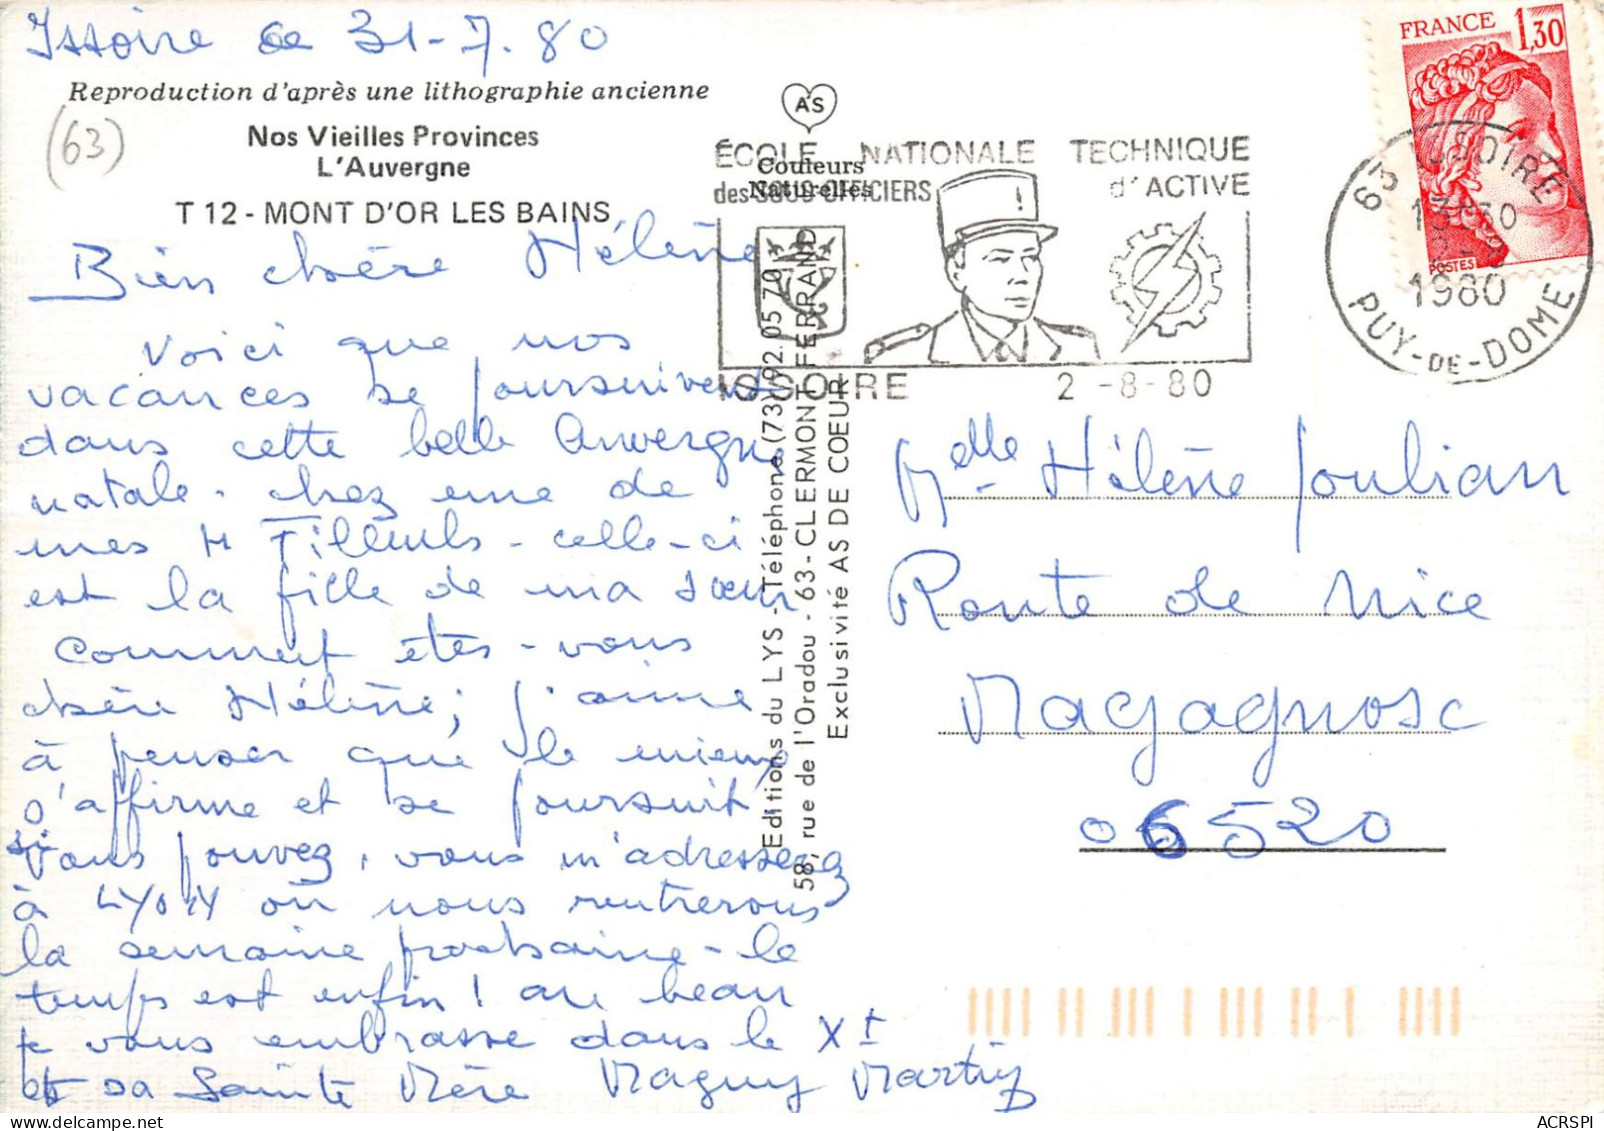 Issoire ce 31-7-80
Reproduction d'après une lithographie ancienne
(63)
Nos Vieilles Provinces
L'Auvergne
T 12 - MONT D'OR LES BAINS
Bien chère Hélène
Voici que nos
vacances se poursuivent
dans cette belle Auvergne
natale - chez une de
mes Filleuls - celle-ci
est la fille de ma sœur
Comment êtes-vous
chère Hélène; j'aime
à penser que le mieux
s'affirme et se poursuit
Si Vous pouvez, vous m'adresserez
à LYON où nous rentrerons
la semaine prochaine - le
temps est enfin! au beau
je vous embrasse dans le Xt
et sa Sainte Mère Maguy Martin
AS
Couleurs
Naturelles
Editions du LYS - Téléphone (73) 92.05.70
58, rue de l'Oradou - 63 - CLERMONT-FERRAND
Exclusivité AS DE CŒUR
ÉCOLE NATIONALE TECHNIQUE
des SOUS-OFFICIERS d'ACTIVE
ISSOIRE 2-8-80
FRANCE 1,30
POSTES
63 ISSOIRE
13H30
1980
PUY-DE-DOME
Melle Hélène Joulian
Route de Nice
Magagnosc
06520
ACRSPI